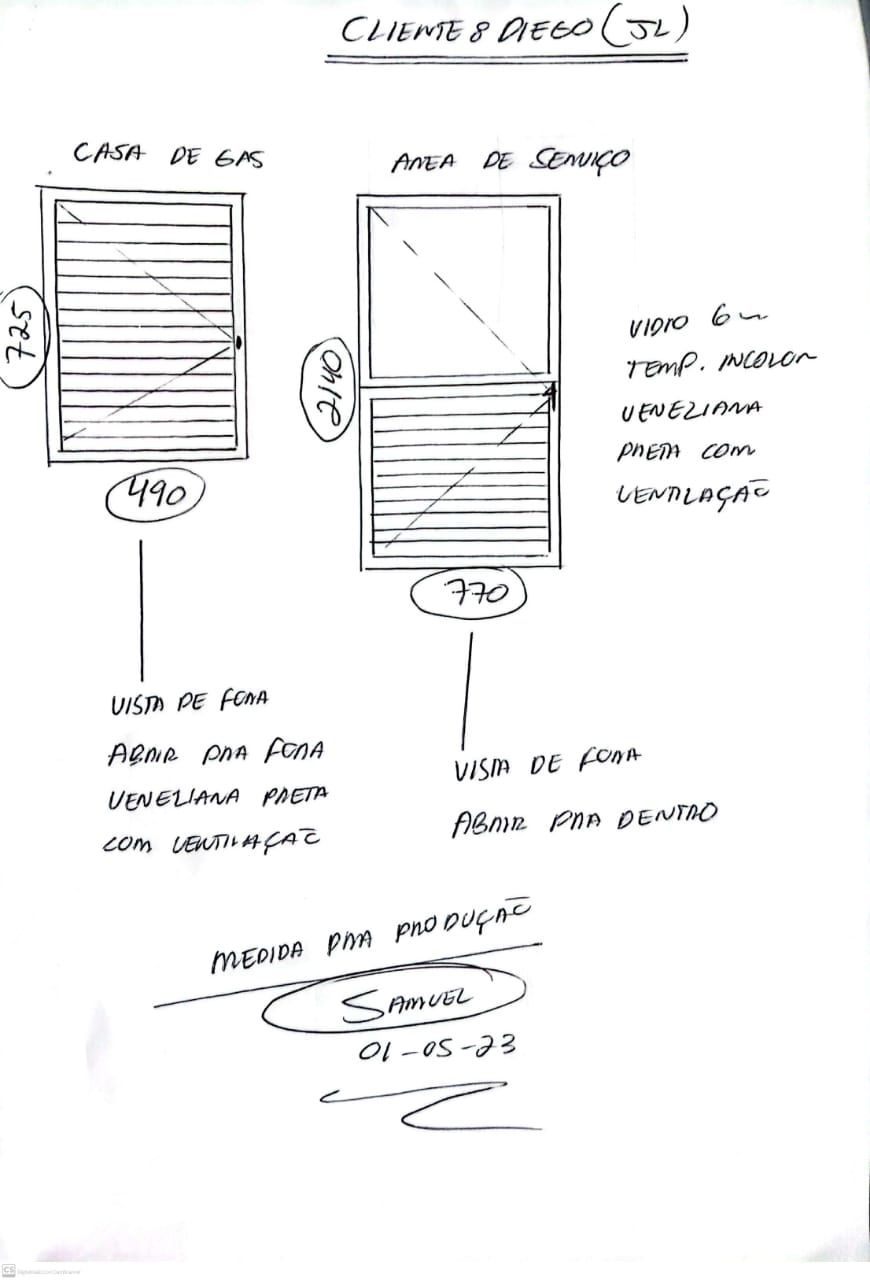 CLIENTE: DIEGO (JL)
CASA DE GAS
AREA DE SERVIÇO
725
2140
VIDRO 6m
TEMP. INCOLOR
VENEZIANA
PRETA COM
VENTILAÇÃO
490
770
VISTA DE FORA
ABRIR PRA FORA
VENEZIANA PRETA
COM VENTILAÇÃO
VISTA DE FORA
ABRIR PRA DENTRO
MEDIDA PRA PRODUÇÃO
SAMUEL
01-05-23
CS